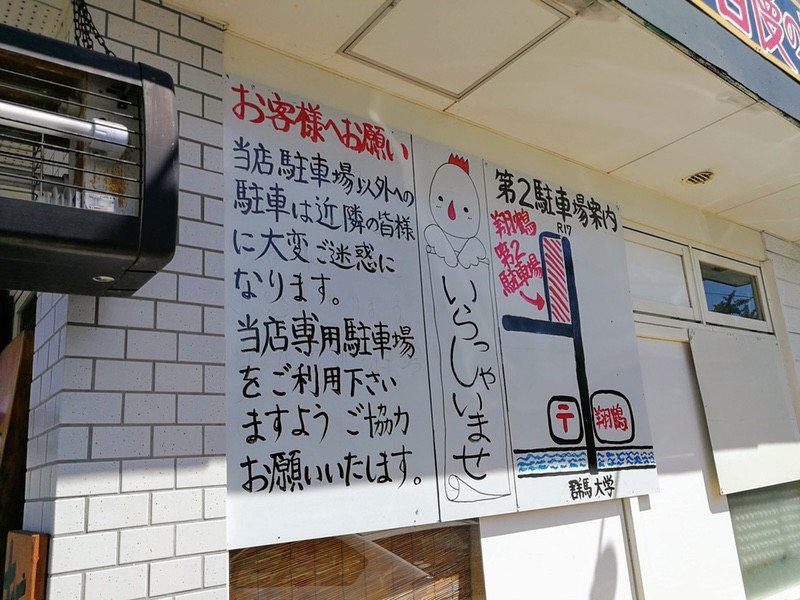 お客様へお願い
当店駐車場以外への
駐車は近隣の皆様
に大変ご迷惑に
なります。
当店専用駐車場
をご利用下さい
ますよう ご協力
お願いいたします。
いらっしゃいませ
第2駐車場案内
R17
翔鶴
第2
駐車場
〒
翔鶴
群馬大学
自慢の